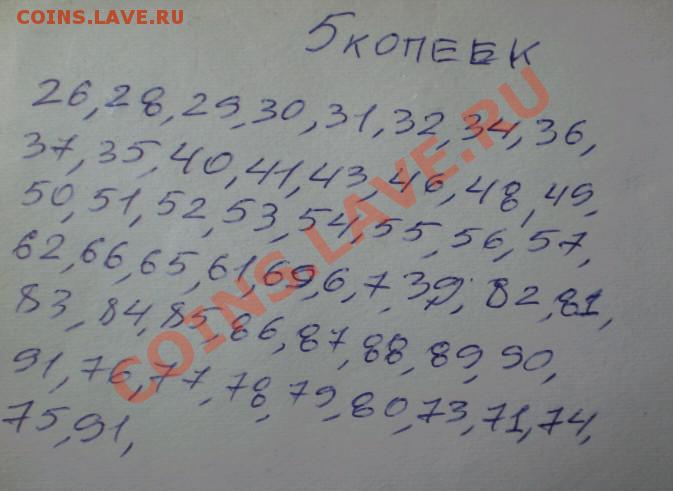 COINS.LAVE.RU
5 копеек
26, 28, 29, 30, 31, 32, 34, 36,
37, 35, 40, 41, 43, 46, 48, 49,
50, 51, 52, 53, 54, 55, 56, 57,
62, 66, 65, 61, 69, 6, 7, 39, 82, 81,
83, 84, 85, 86, 87, 88, 89, 90,
91, 76, 77, 78, 79, 80, 73, 71, 74,
75, 91,
COINS.LAVE.RU